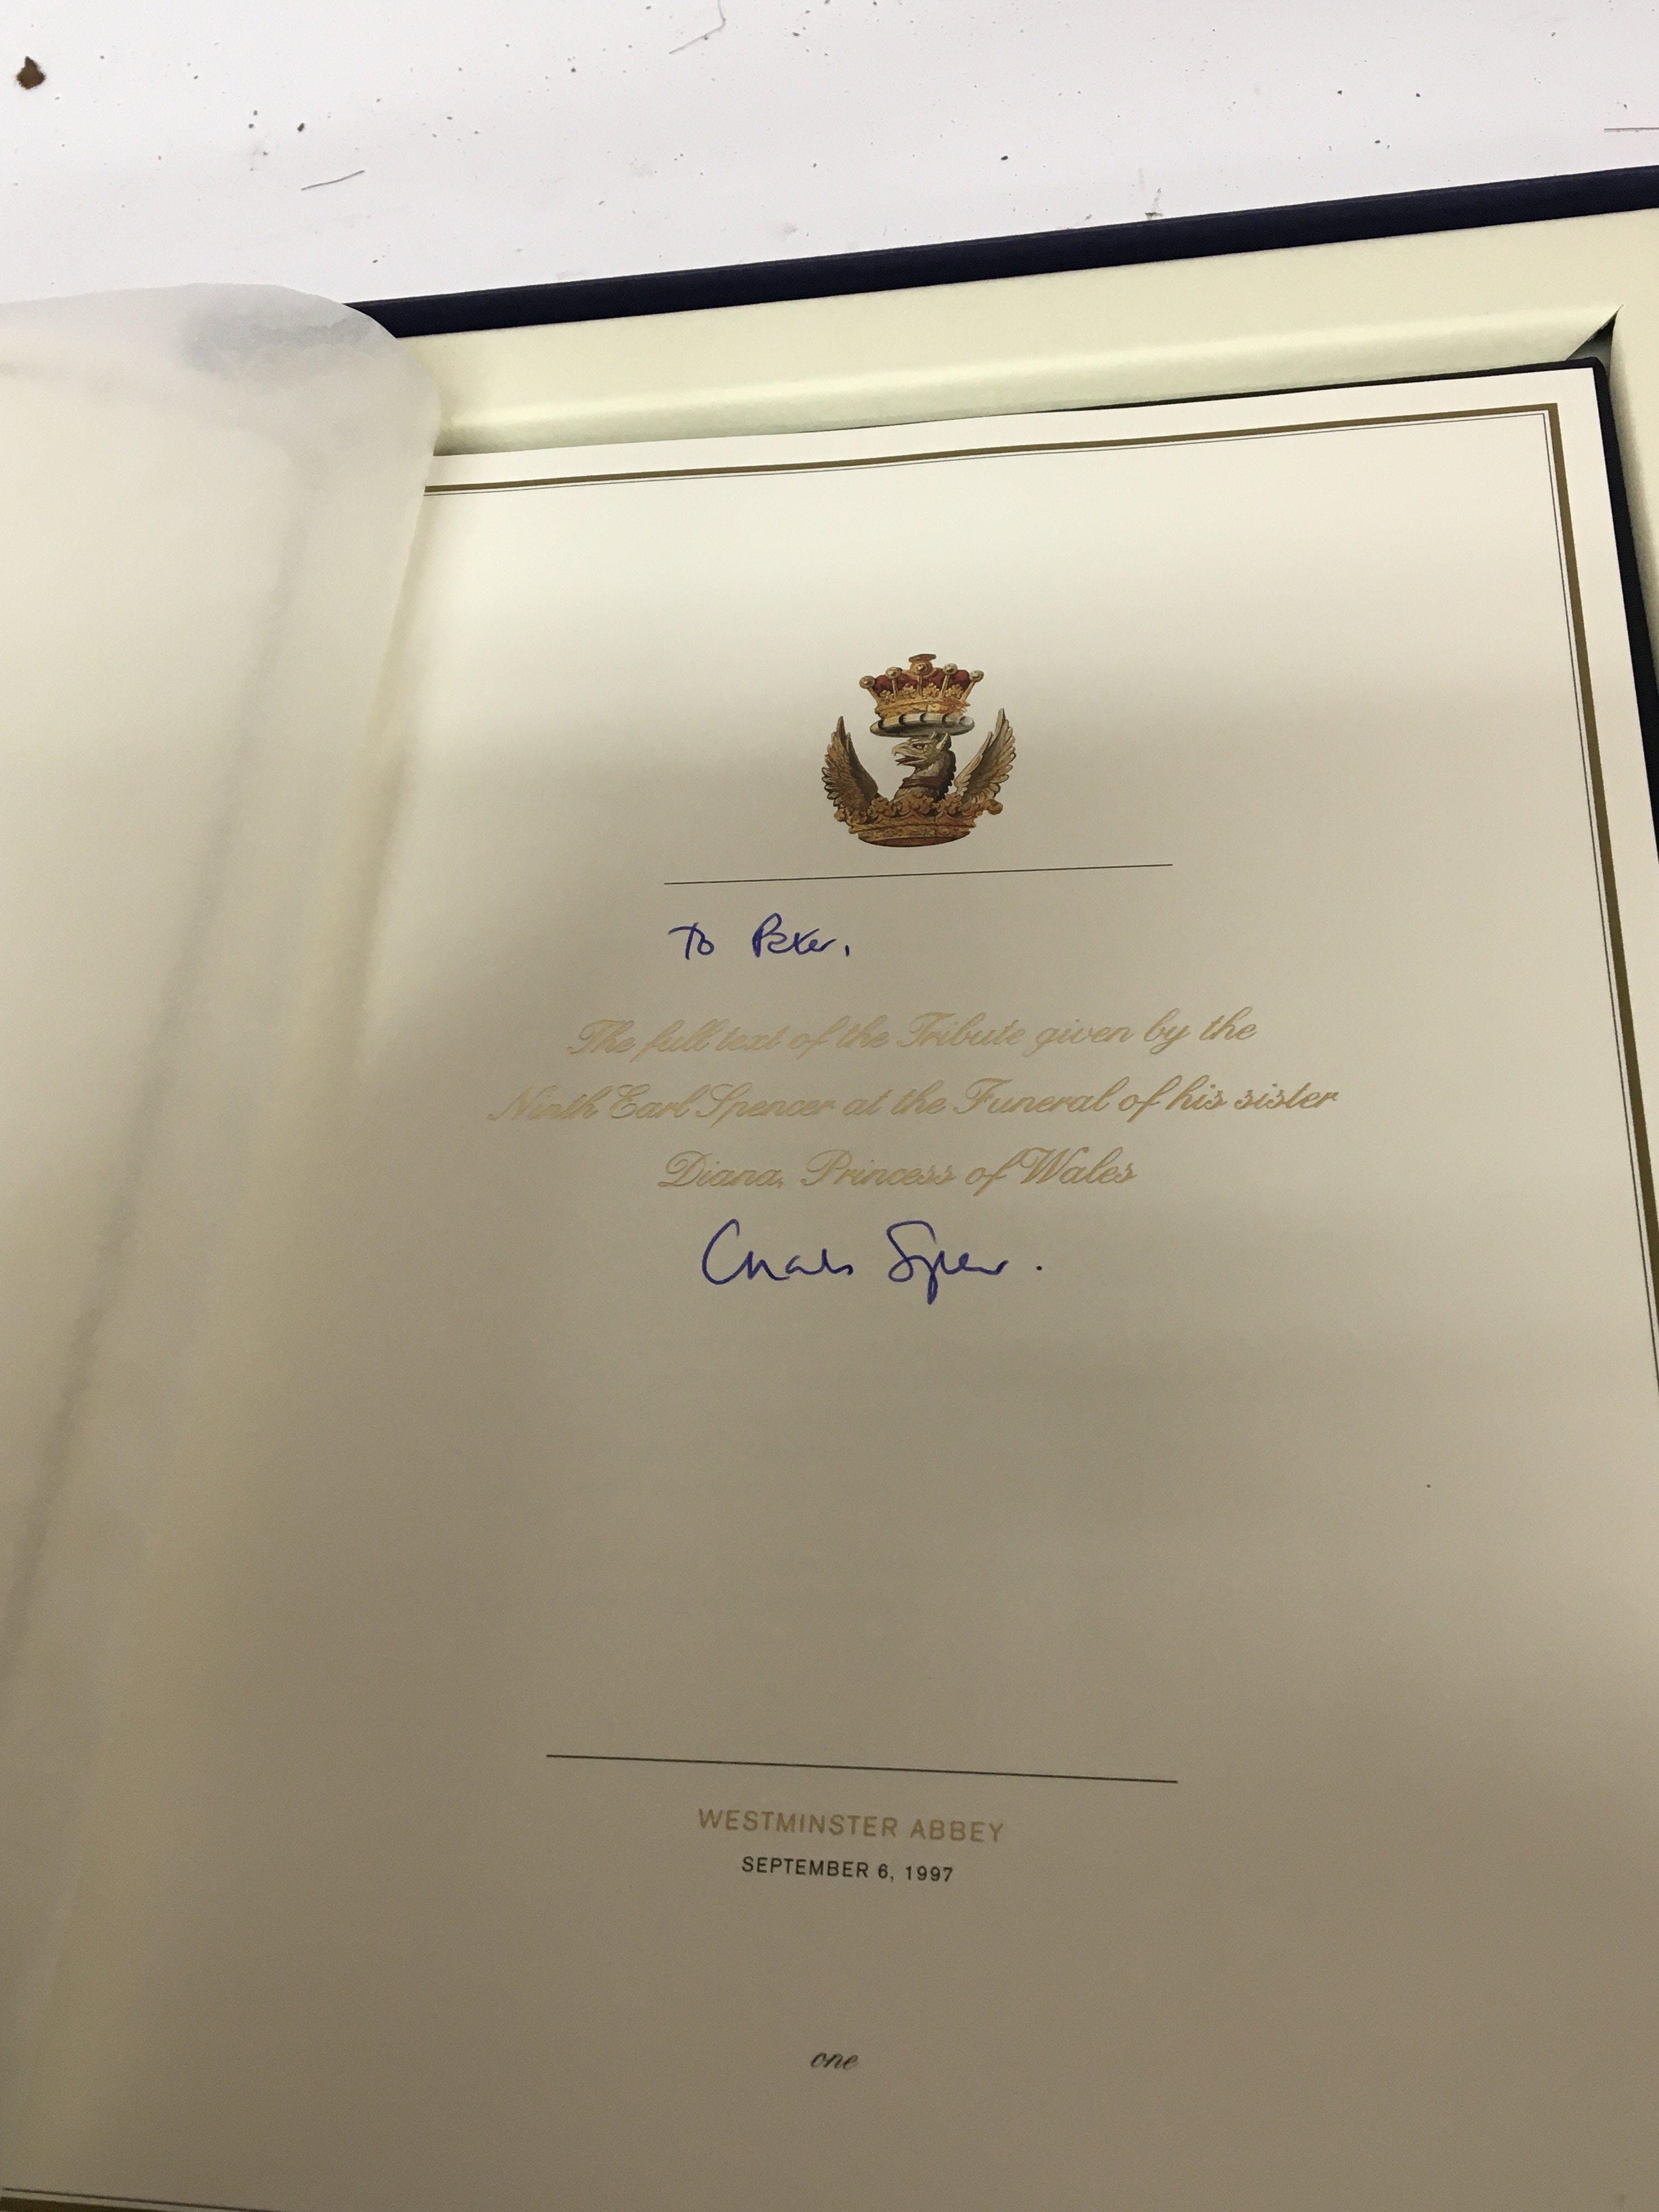 To Peter,
The full text of the Tribute given by the
Ninth Earl Spencer at the Funeral of his sister
Diana, Princess of Wales
Charles Spencer.
WESTMINSTER ABBEY
SEPTEMBER 6, 1997
one